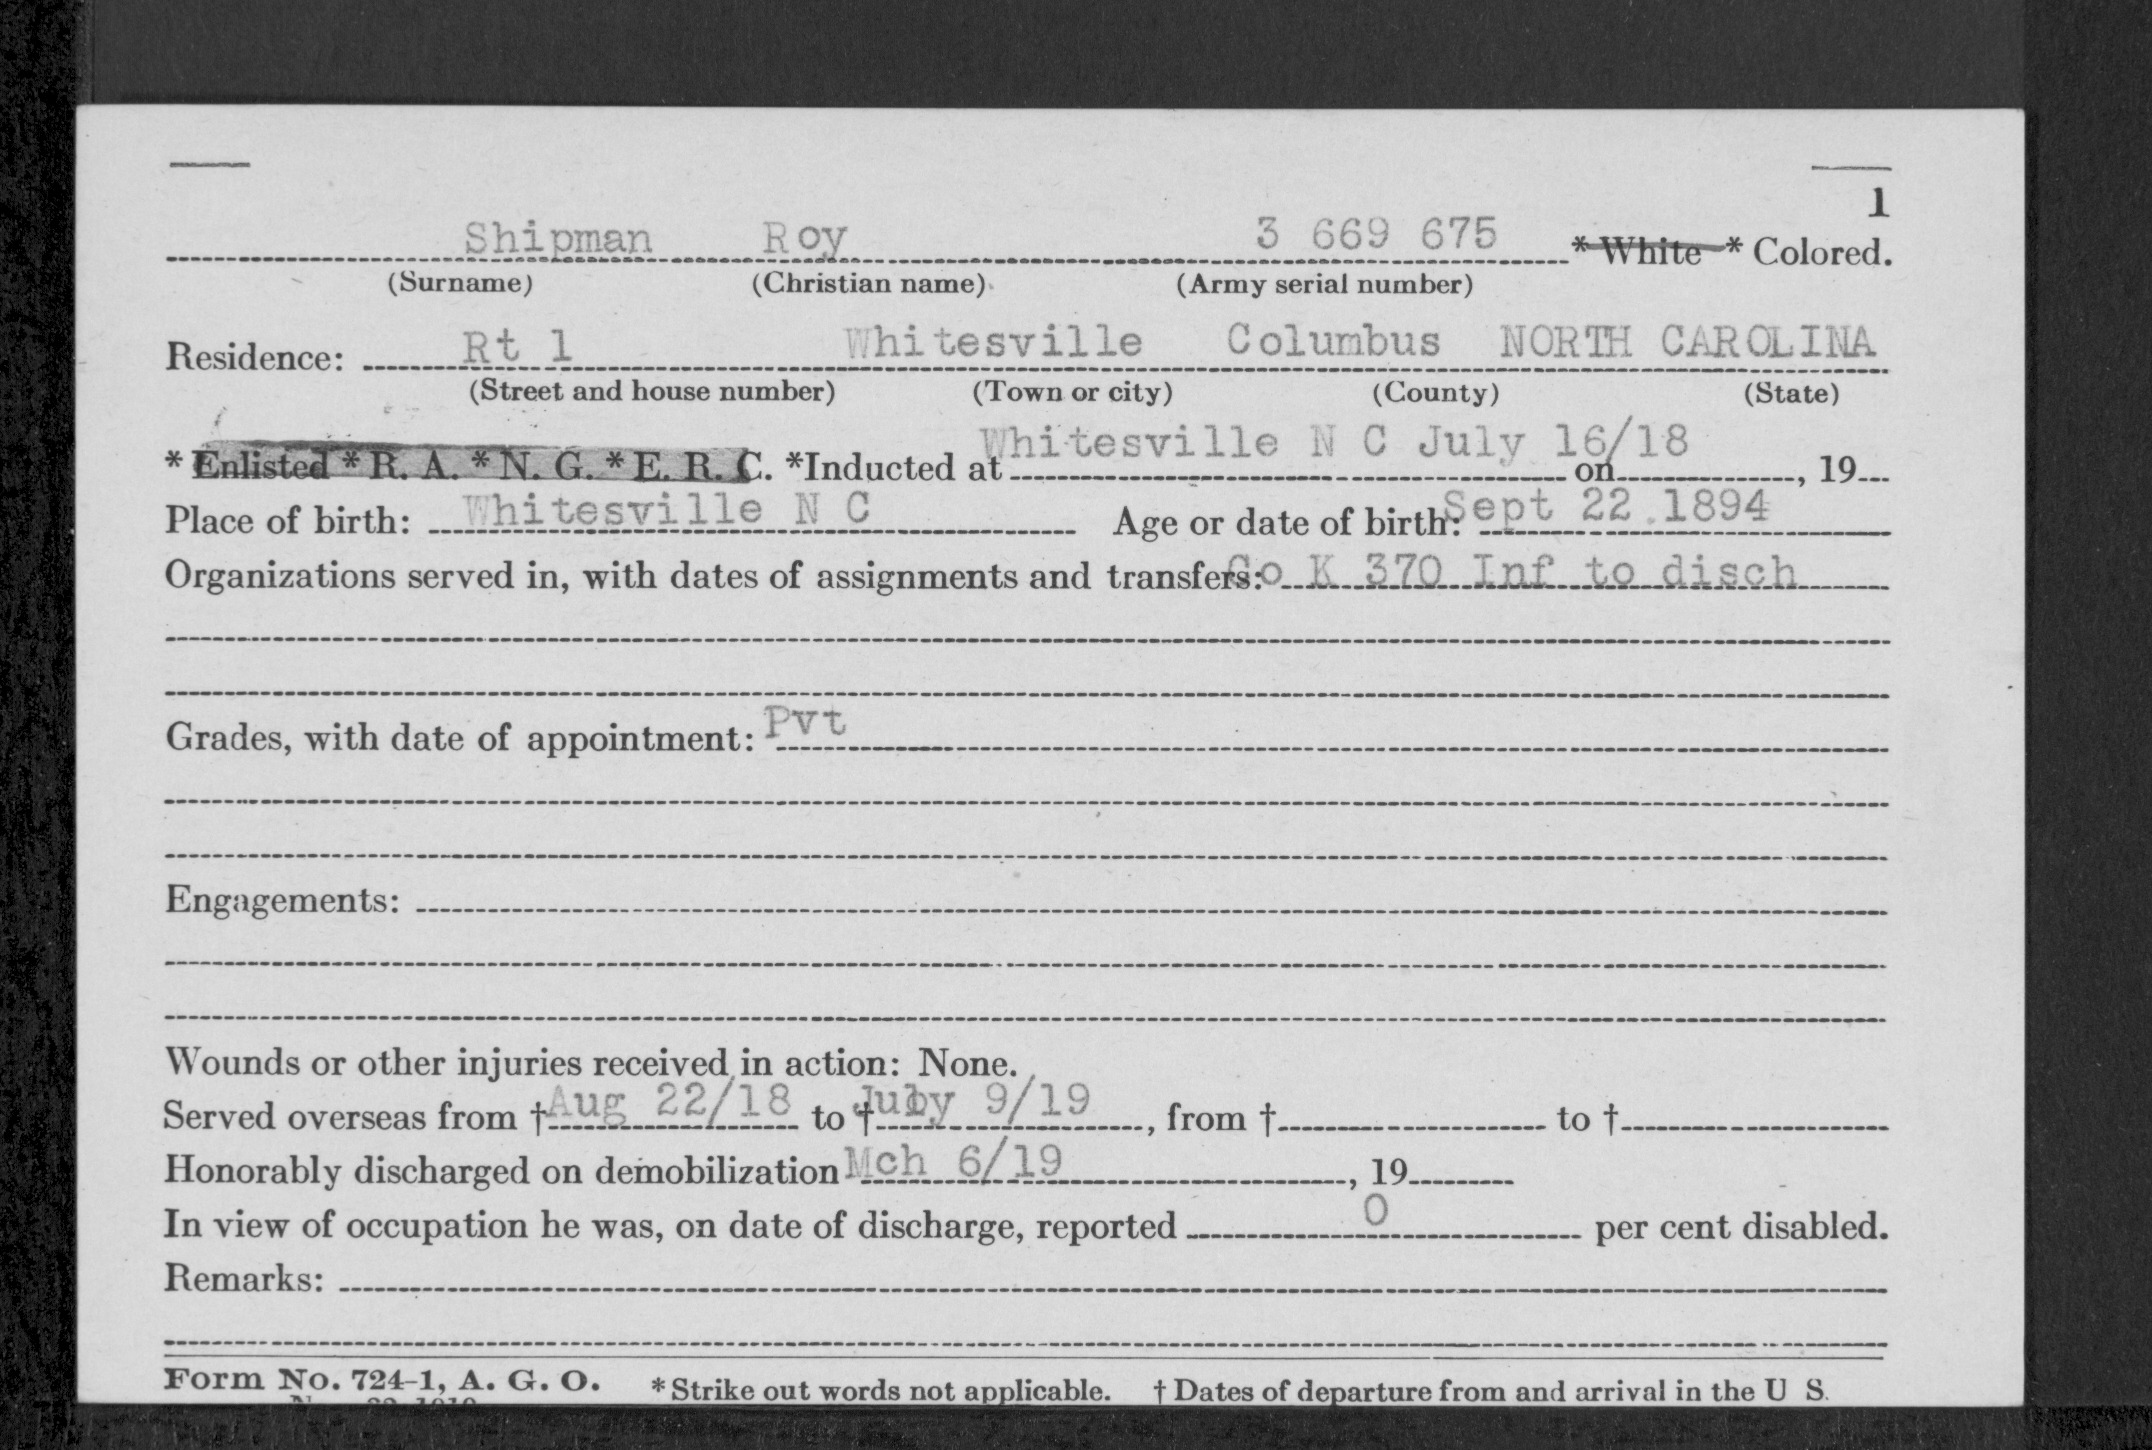 1
Shipman Roy 3 669 675 * White * Colored.
(Surname) (Christian name) (Army serial number)
Residence: Rt 1 Whitesville Columbus NORTH CAROLINA
(Street and house number) (Town or city) (County) (State)
* Enlisted * R. A. * N. G. * E. R. C. *Inducted at Whitesville N C July 16/18 on , 19
Place of birth: Whitesville N C Age or date of birth: Sept 22 1894
Organizations served in, with dates of assignments and transfers: Co K 370 Inf to disch
Grades, with date of appointment: Pvt
Engagements:
Wounds or other injuries received in action: None.
Served overseas from † Aug 22/18 to † 9/19, from † to †
Honorably discharged on demobilization Mch 6/19 , 19
In view of occupation he was, on date of discharge, reported 0 per cent disabled.
Remarks:
Form No. 724-1, A. G. O. * Strike out words not applicable. † Dates of departure from and arrival in the U S.